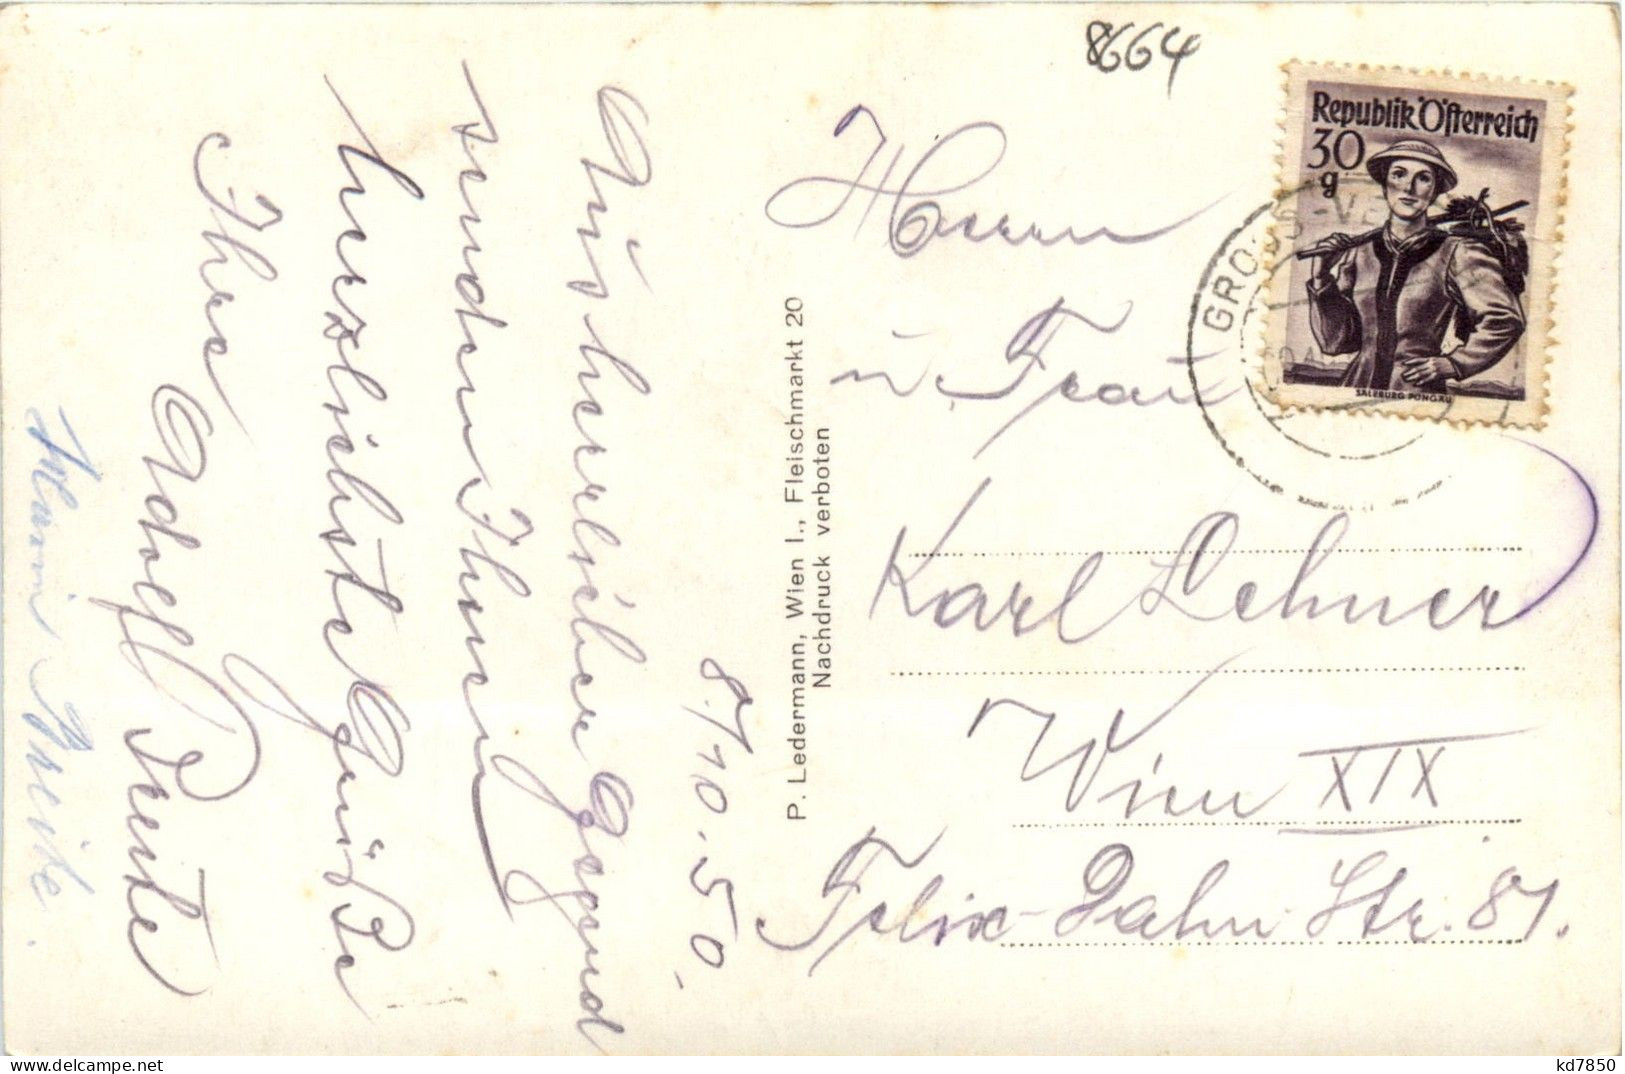 8664
Republik Österreich
30
g
SALZBURG PONGAU
GROSS-VE
8./10.50.
Aus herrlicher Gegend
senden Ihnen
herzlichste Grüße
Ihre
P. Ledermann, Wien I., Fleischmarkt 20
Nachdruck verboten
Herrn
u. Frau
Karl Lehner
Wien XIX
Felix-Dahn Str. 81.
kd7850